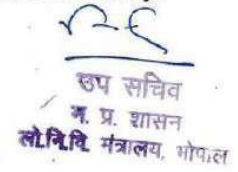 उप सचिव
म. प्र. शासन
लो.नि.वि. मंत्रालय, भोपाल